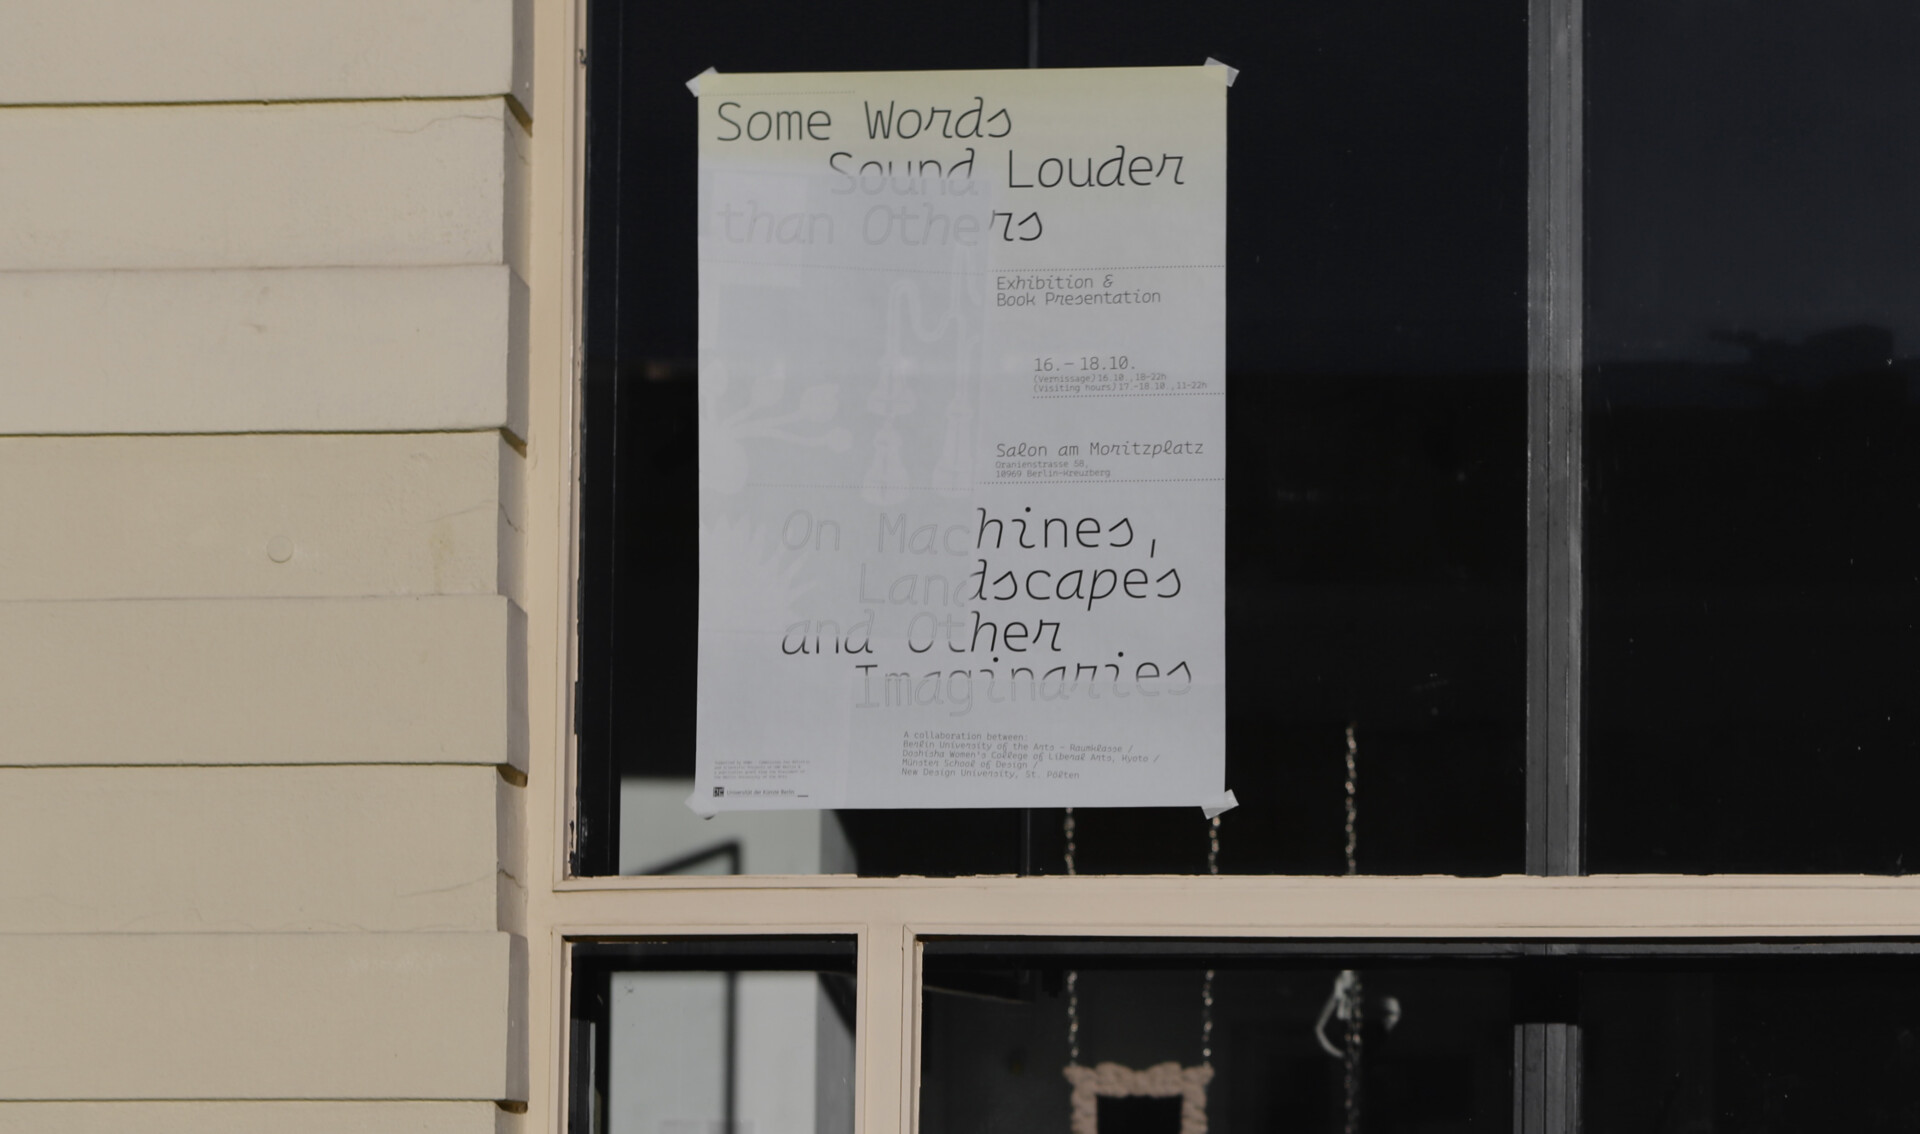 Some Words
Sound Louder
than Others
Exhibition &
Book Presentation
16.–18.10.
(Vernissage) 16.10.,18–22h
(Visiting hours) 17.–18.10.,11–22h
Salon am Moritzplatz
Oranienstrasse 58,
10969 Berlin-Kreuzberg
On Machines,
Landscapes
and Other
Imaginaries
A collaboration between:
Berlin University of the Arts – Raumklasse /
Doshisha Women's College of Liberal Arts, Kyoto /
Münster School of Design /
New Design University, St. Pölten
Universität der Künste Berlin